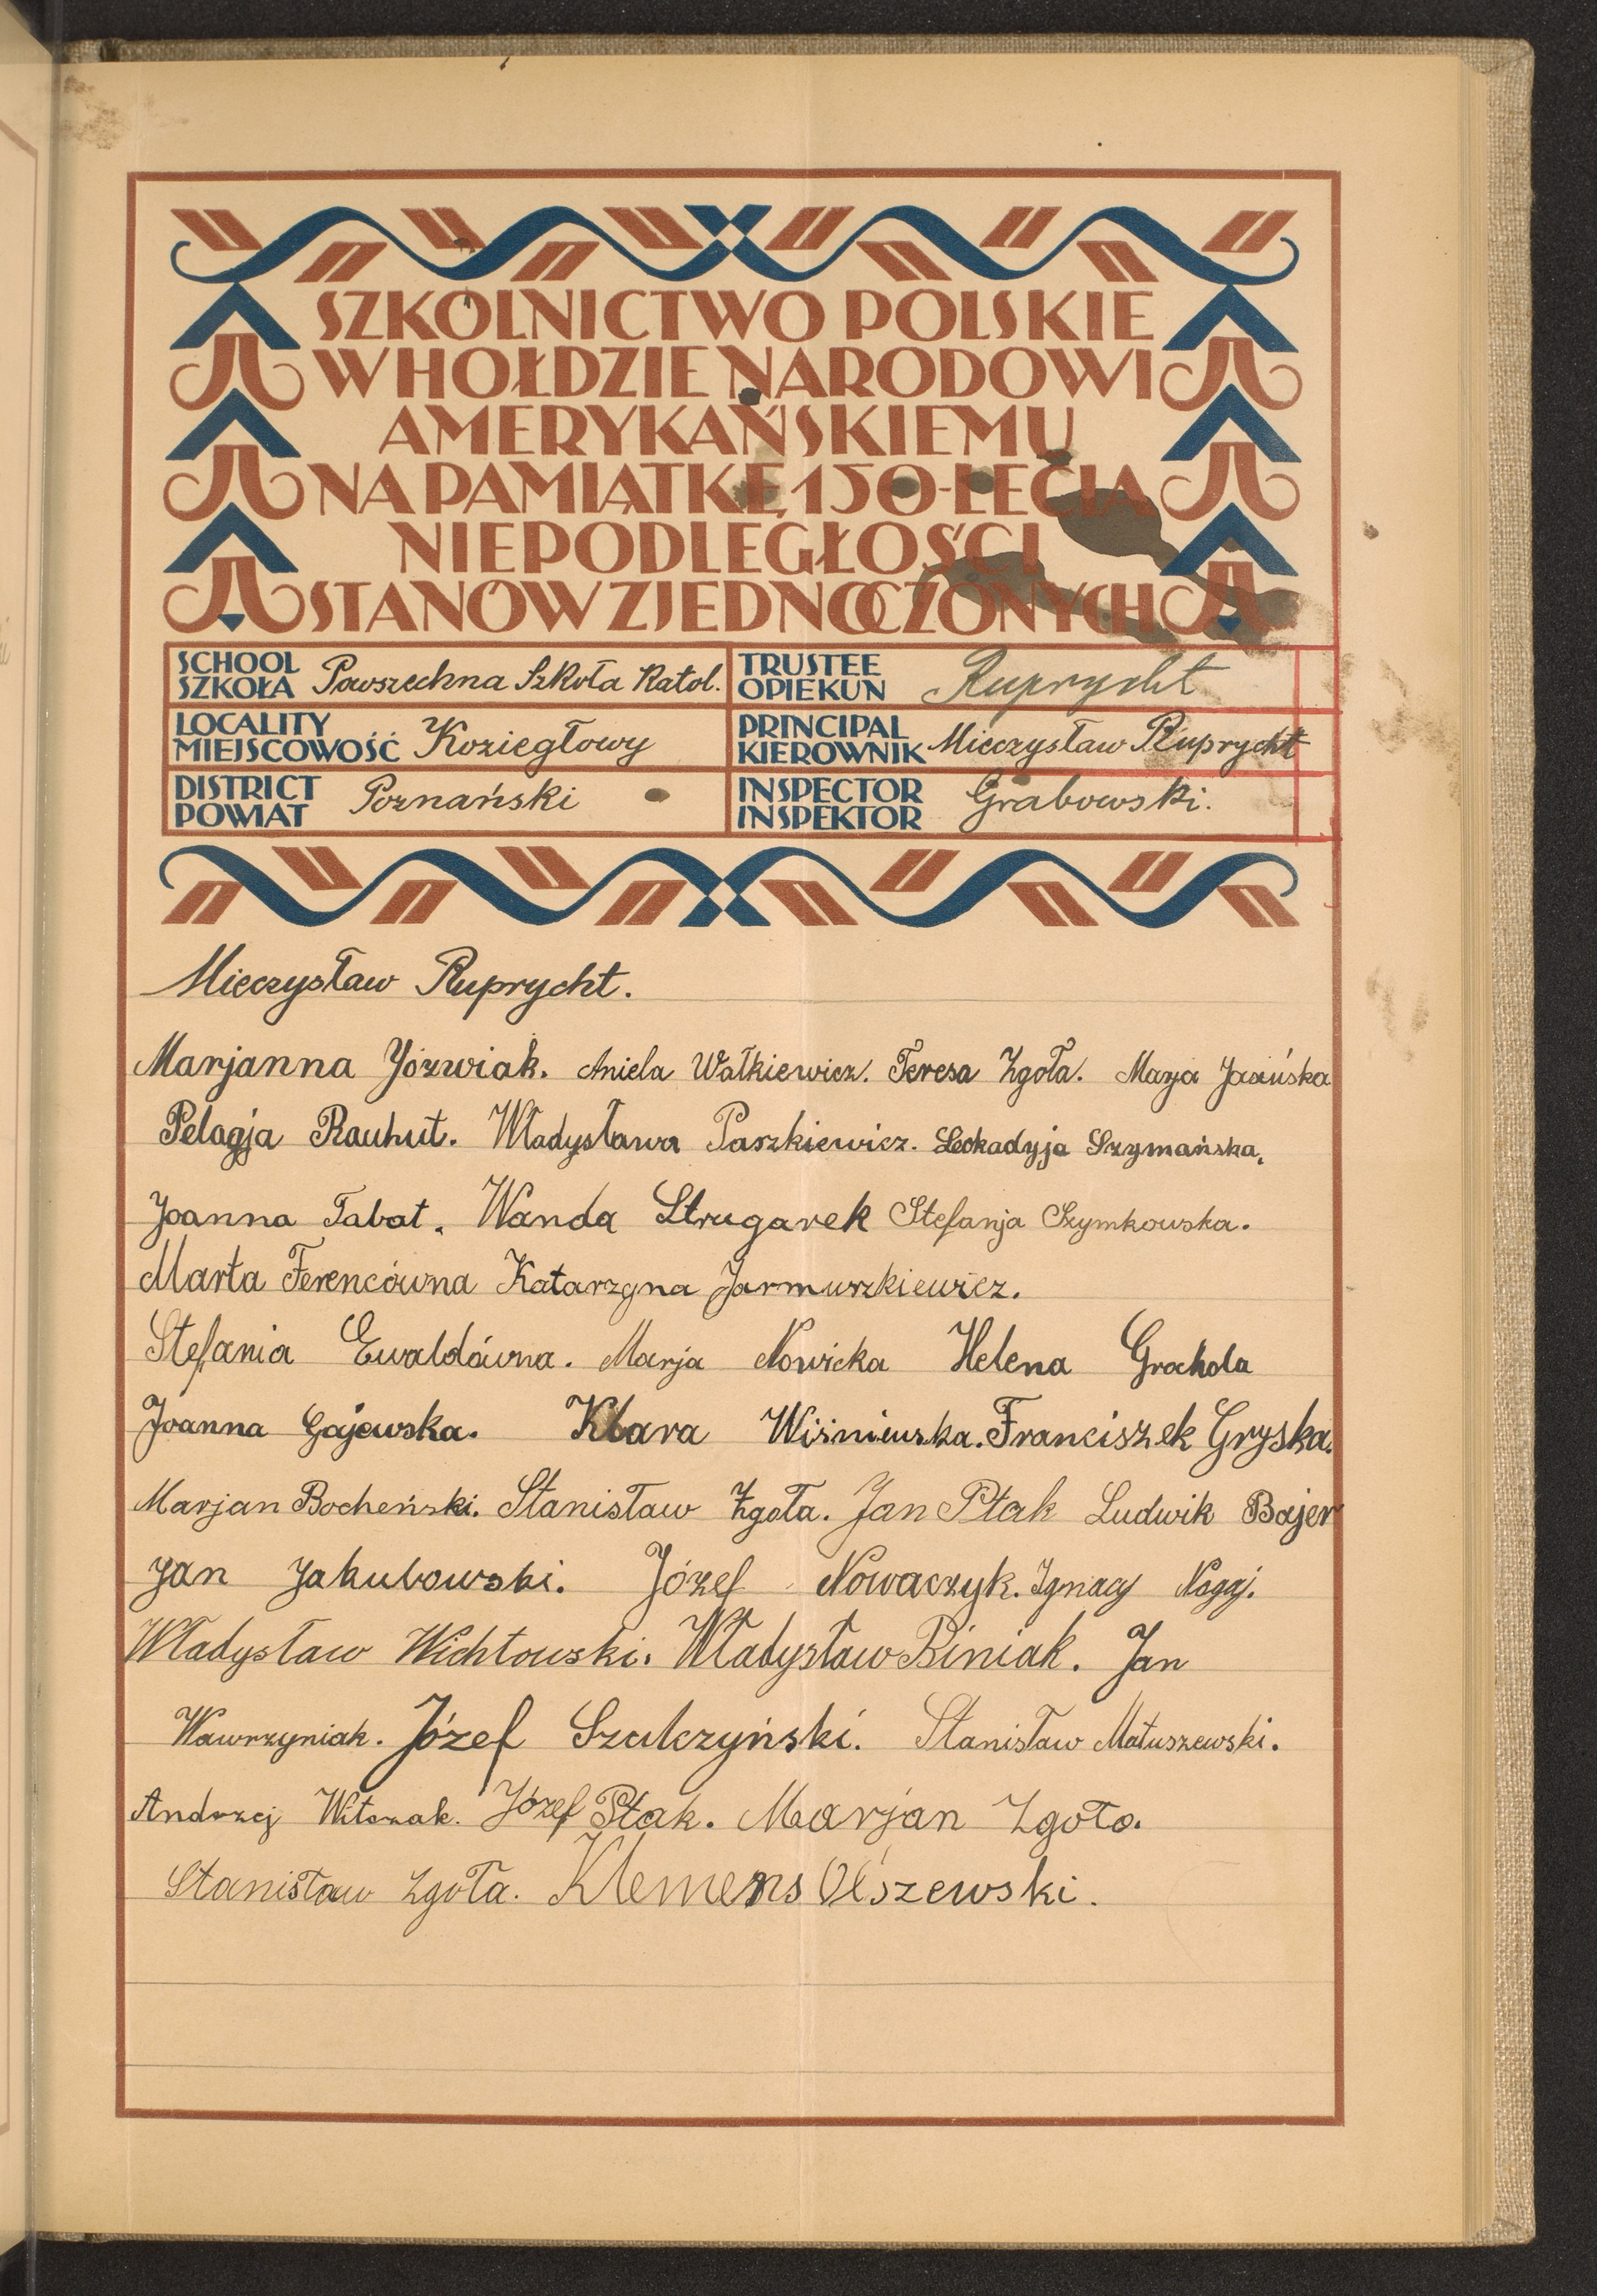 SZKOLNICTWO POLSKIE
W HOŁDZIE NARODOWI
AMERYKAŃSKIEMU
NA PAMIĄTKĘ 150-LECIA
NIEPODLEGŁOŚCI
STANÓW ZJEDNOCZONYCH
SCHOOL
SZKOŁA Powszechna Szkoła Katol.
TRUSTEE
OPIEKUN Ruprycht
LOCALITY
MIEJSCOWOŚĆ Koziegłowy
PRINCIPAL
KIEROWNIK Mieczysław Ruprycht
DISTRICT
POWIAT Poznański
INSPECTOR
INSPEKTOR Grabowski.
Mieczysław Ruprycht.
Marjanna Józwiak. Aniela Wałkiewicz. Teresa Zgoła. Marja Jasińska
Pelagja Rauhut. Władysława Paszkiewicz. Leokadyja Szymańska.
Joanna Tabat. Wanda Strugarek Stefanja Szymkowska.
Marta Ferencówna Katarzyna Jarmuszkiewicz.
Stefania Ewaldówna. Marja Nowicka Helena Grochola
Joanna Gajewska. Klara Wiśniewska. Franciszek Gryska.
Marjan Bocheński. Stanisław Zgoła. Jan Ptak Ludwik Bajer
Jan Jakubowski. Józef Nowaczyk. Ignacy Nogaj.
Władysław Wichłowski. Władysław Biniak. Jan
Wawrzyniak. Józef Szulczyński. Stanisław Matuszewski.
Andrzej Witczak. Józef Ptak. Marjan Zgoła.
Stanisław Zgoła. Klemens Olszewski.